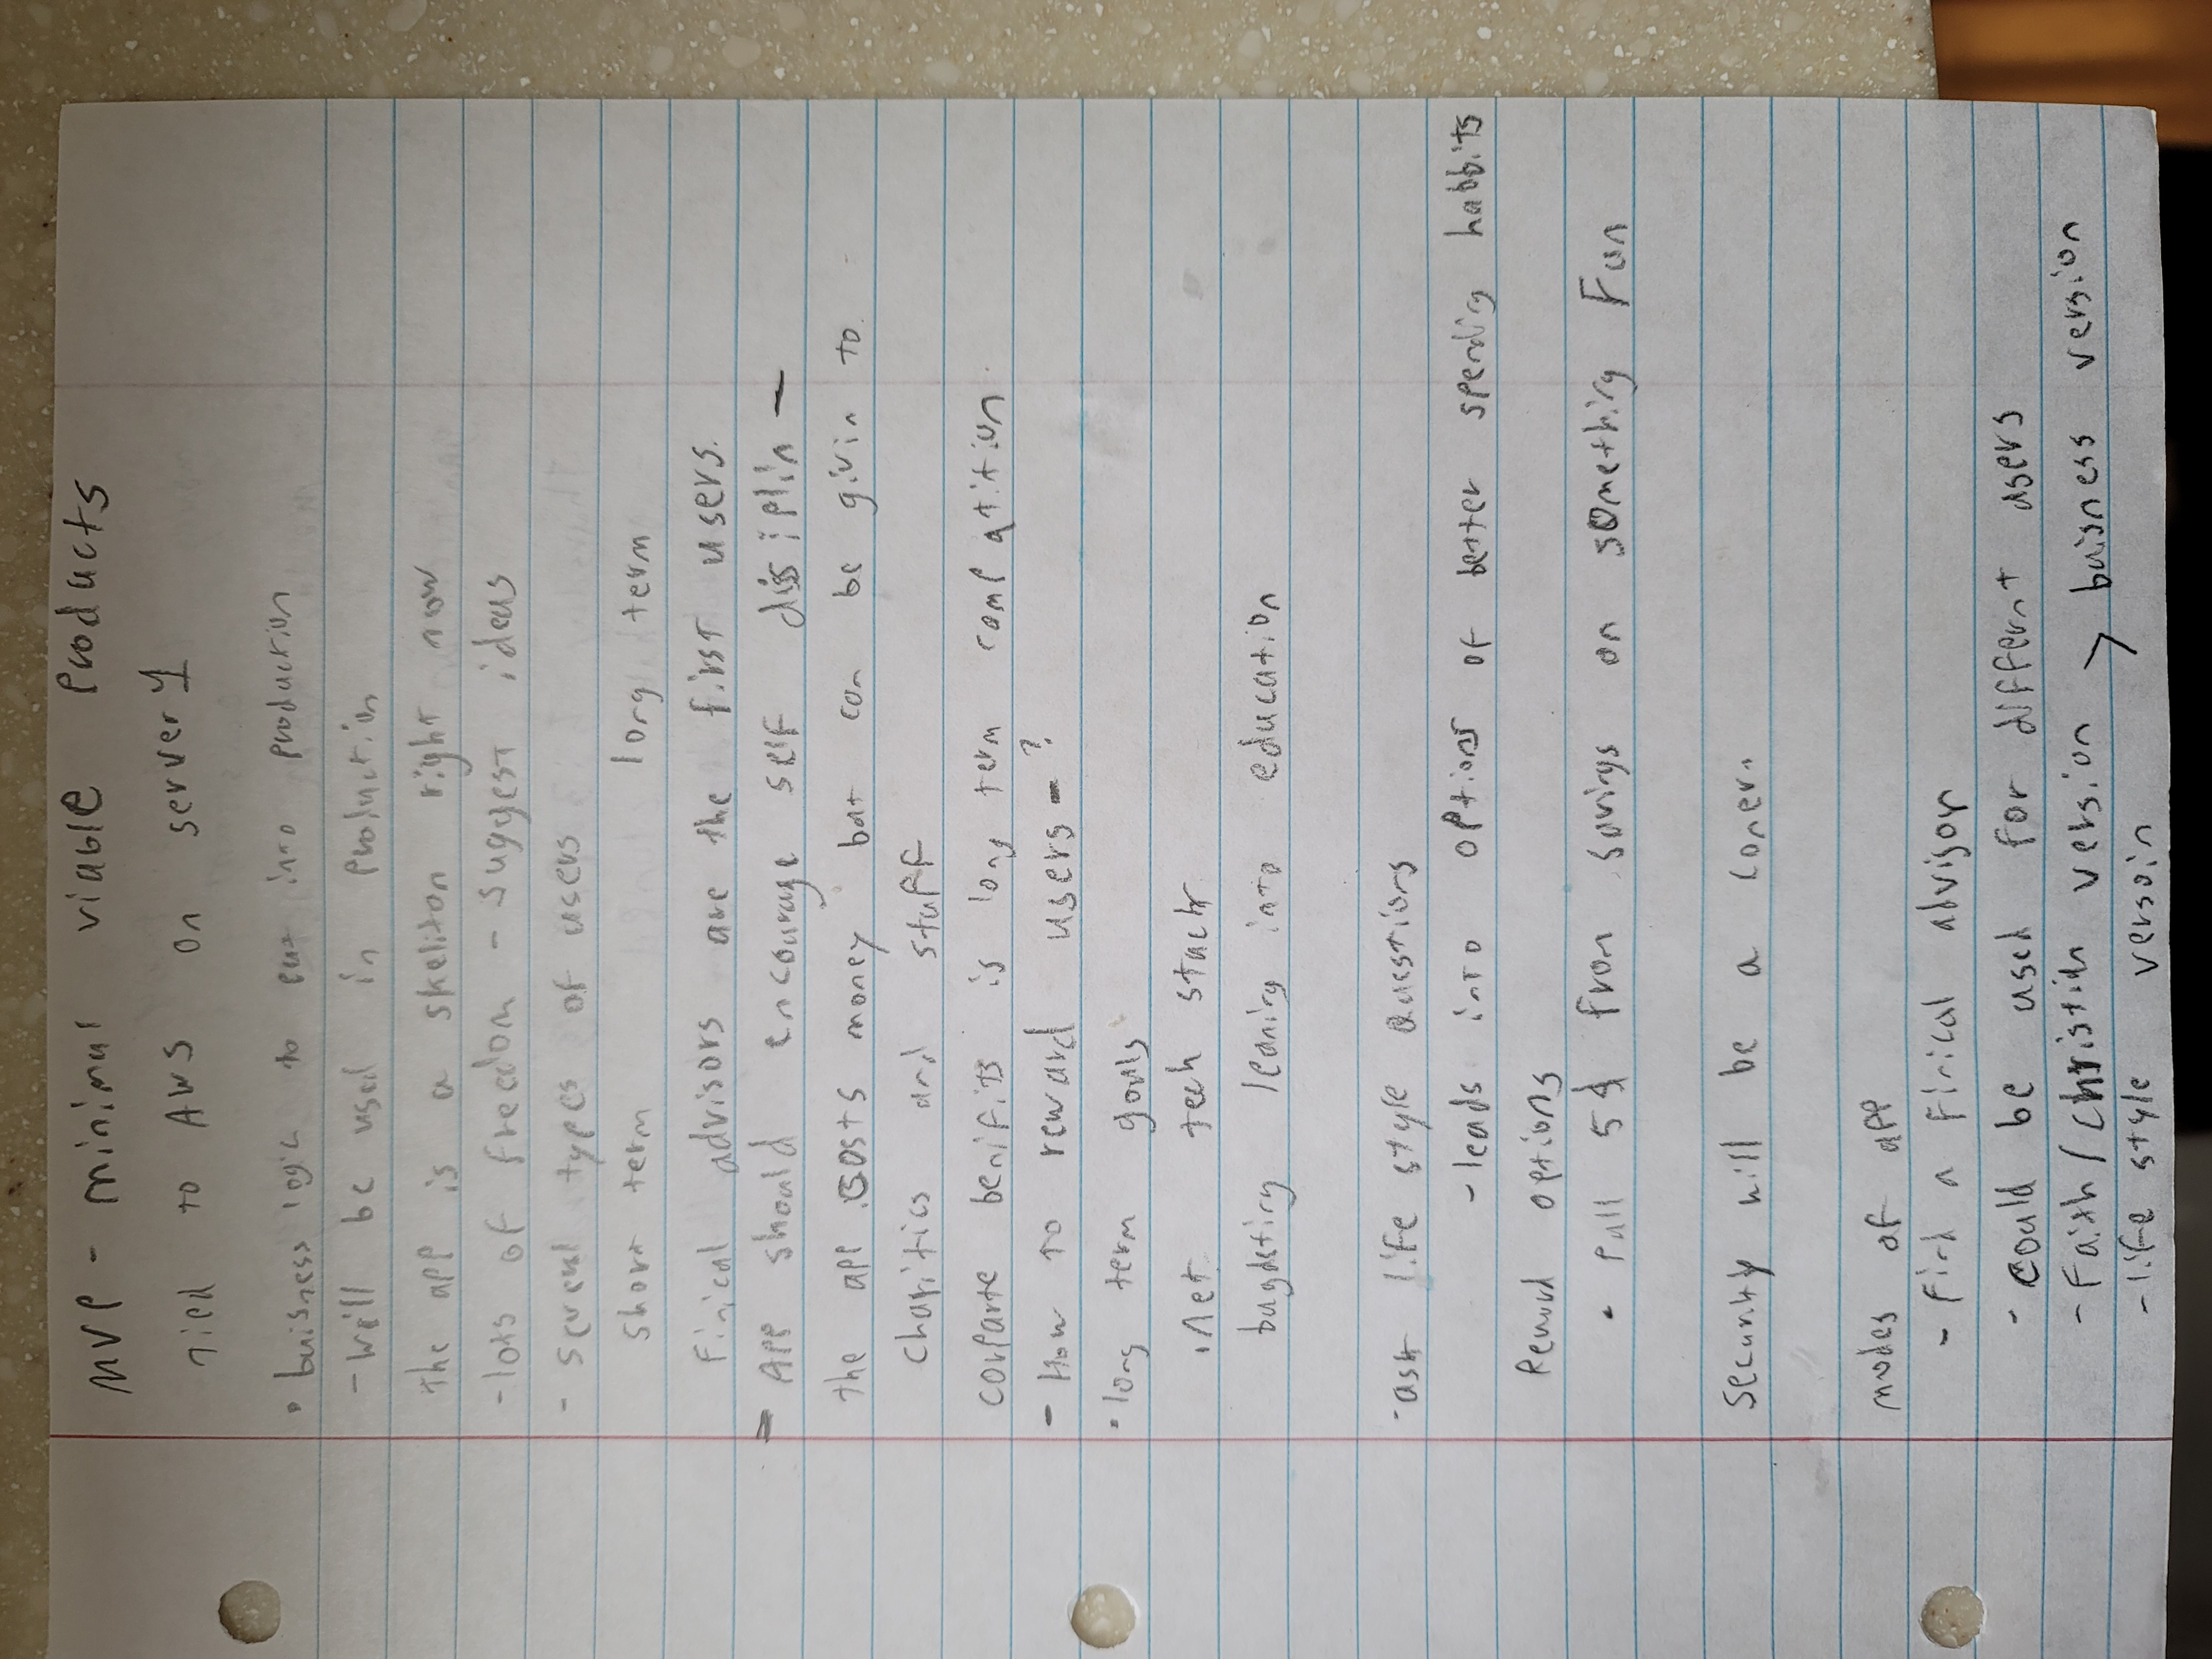 MVP - minimal viable Products
Tied to AWS on server 1
• buisness logic to put into production
- Will be used in Production
the app is a skeliton right now
- lots of freedom - suggest ideas
- several types of users
short term long term
Finical advisors are the first users.
- App should encourage self disiplin -
the app costs money but can be givin to
Charities and stuff
corparte benifits is long term compatition
- How to reward users - ?
• long term gouls
.net tech stack
bugdsting leaning into education
- ask life style Questions
- leads into options of better spending habbits
Reward options
• Pull 5$ from savings on something Fun
Security will be a conern
modes of app
- Find a Finical advisor
- could be used for differnt users
- Faith / Christian version > buisness version
- life style versoin